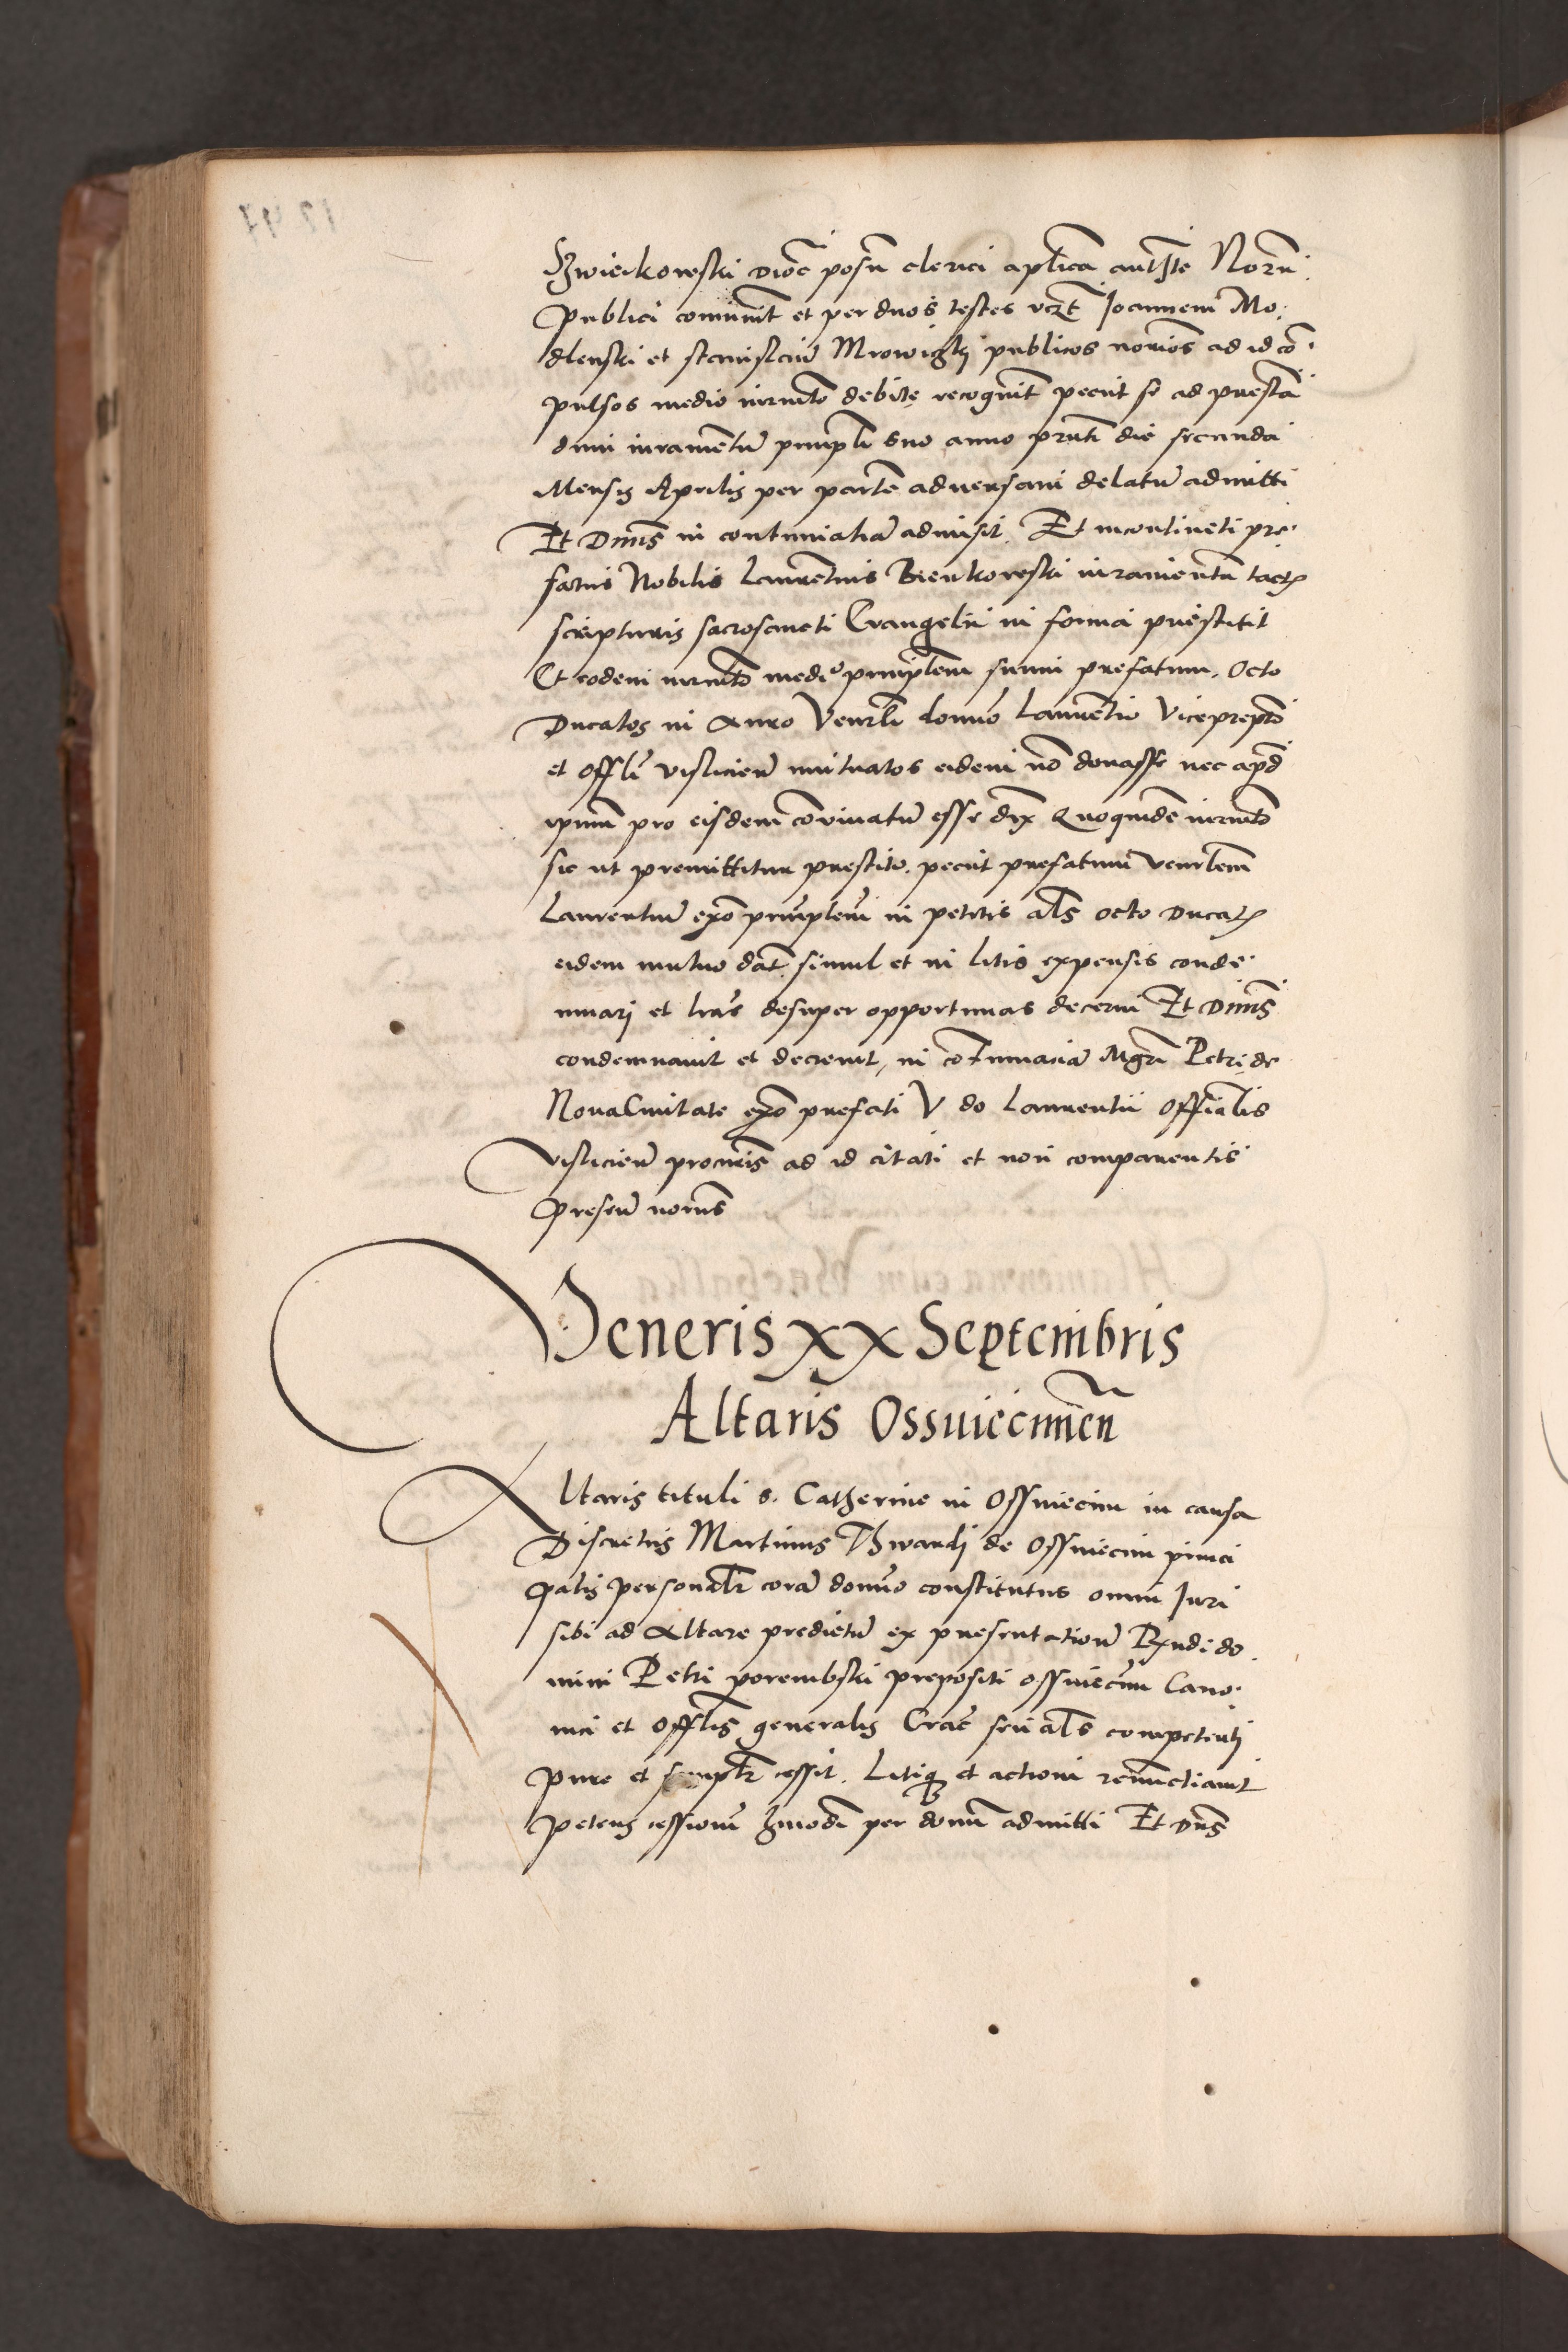 Szwieckowski dioc posn clerici aplica authte Norii
publici comunit et per duos testes vczt Joannem Mo
dlenski et stanislaum Mrowiczky publicos norios ad id co
pulsos medio iurmto debite recognit peciit se ad presta
dum iuramentum principli suo anno prnti die secunda
Mensis Aprilis per partem adversam delatum admitti
Et Dnus in contumatiam admisit. Et incontineti pre
fatus Nobilis Laurentius Bienkowski iuramentum tactis
scripturis sacrosancti Evangelii in forma prestitit
Et eodem iurmto medio principlem suum prefatum. Octo
Ducatos in Auro Venrli domno Laurentio Viceprepto
et offli vislicien mutuatos eidem no donasse nec apd
ipsum pro eisdem convivatum esse dix Quoquidem iurmto
sic ut premittitur prestito. peciit prefatum venrlem
Laurentium exo principlem in petitis als octo ducatis
eidem mutuo dat simul et in litis expensis conde
mnari et lras desuper opportunas decerni Et Dnus
condemnavit et decrevit, in contumaciam Mgri Petri de
Nova Civitate exo prefati V do Laurentii Officialis
vislicien procuris ad id citati et non comparentis
presen norius
Veneris XX Septembris
Altaris Ossviecimen
Altaris tituli s. Catherine in Ossviecim in causa
Discretus Martinus Thwardj de Ossviecim princi
palis personalr coram domno constitutus omni Juri
sibi ad Altare predictum ex presentatione Rxndi do
mini Petri porembski prepositi ossviecim Cano
nici et offlis generalis Crac seu als competenti
pure et simplr cessit. Litiq et actioni renunctiavit
petens cessionem hmodi per domnum admitti Et Dnus